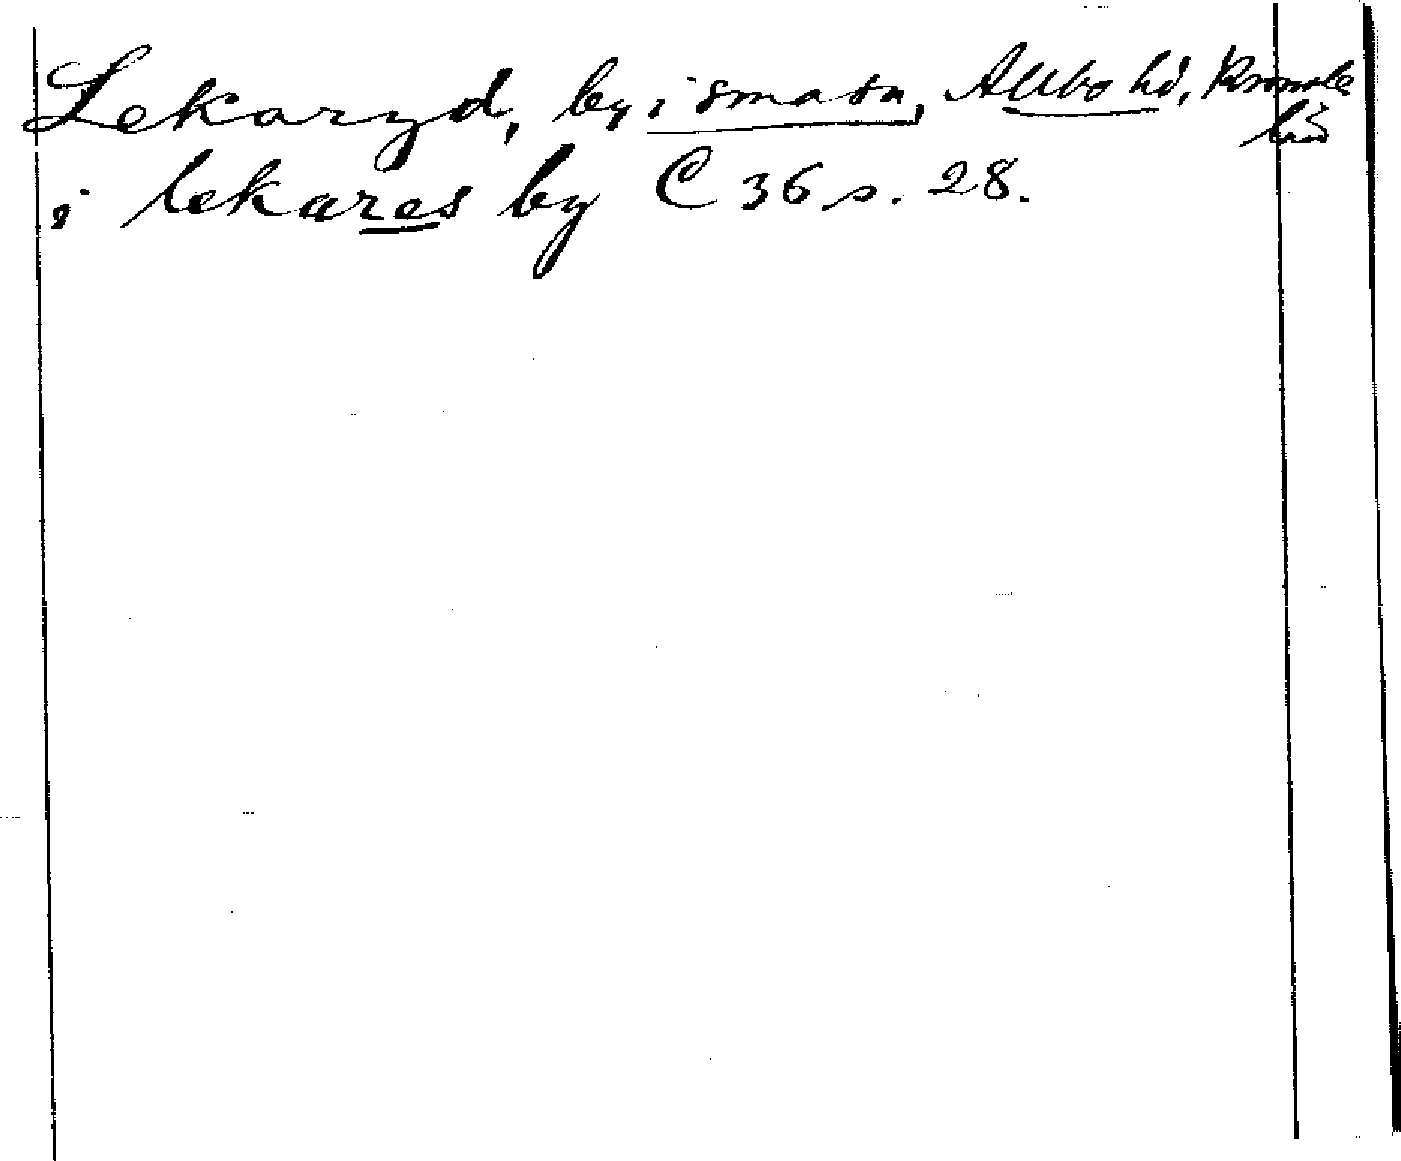 Lekaryd, by i sma sn, Allbo hd, Kronob
län
i lekares by C 36 s. 28.